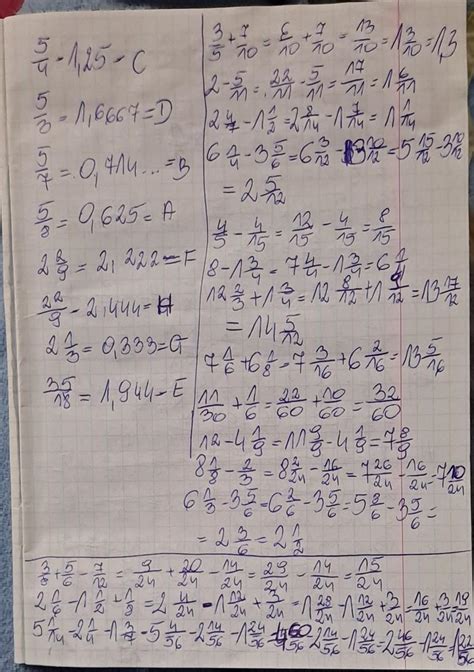 5/4 = 1,25 = C
5/3 = 1,6667 = D
5/7 = 0,714... = B
5/8 = 0,625 = A
2 2/9 = 2,222 = F
22/9 = 2,444 = H
2 1/3 = 0,333 = G
35/18 = 1,944 = E
3/5 + 7/10 = 6/10 + 7/10 = 13/10 = 1 3/10 = 1,3
2 - 5/11 = 22/11 - 5/11 = 17/11 = 1 6/11
2 4/7 - 1 1/2 = 2 8/14 - 1 7/14 = 1 1/14
6 1/4 - 3 5/6 = 6 3/12 - 3 10/12 = 5 15/12 - 3 10/12
= 2 5/12
4/5 - 4/15 = 12/15 - 4/15 = 8/15
8 - 1 3/4 = 7 4/4 - 1 3/4 = 6 1/4
12 2/3 + 1 3/4 = 12 8/12 + 1 9/12 = 13 17/12
= 14 5/12
7 1/6 + 6 1/8 = 7 3/16 + 6 2/16 = 13 5/16
11/30 + 1/6 = 22/60 + 10/60 = 32/60
12 - 4 1/9 = 11 9/9 - 4 1/9 = 7 8/9
8 1/8 - 2/3 = 8 2/24 - 16/24 = 7 26/24 - 16/24 = 7 10/24
6 1/3 - 3 5/6 = 6 2/6 - 3 5/6 = 5 8/6 - 3 5/6 =
= 2 3/6 = 2 1/2
3/8 + 5/6 - 7/12 = 9/24 + 20/24 - 14/24 = 29/24 - 14/24 = 15/24
2 1/6 - 1 1/2 + 1/8 = 2 4/24 - 1 12/24 + 3/24 = 1 28/24 - 1 12/24 + 3/24 = 16/24 + 3/24 = 19/24
5 1/14 - 2 1/4 - 1 3/7 = 5 4/56 - 2 14/56 - 1 24/56 2 14/56 - 1 24/56